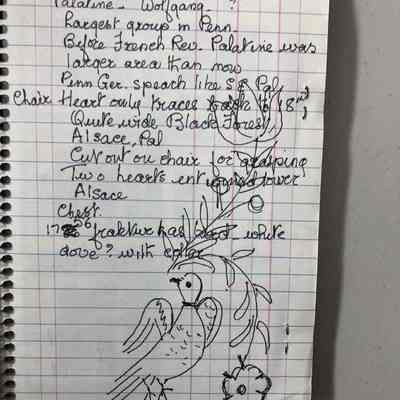 Palatine - Wolfgang - ?
Largest group in Penn.
Before French Rev. Palatine was
larger area than now
Penn Ger. speach like S. Pal
Chair Heart only traces back to 18
Quite wide Black Forest,
Alsace, Pal
Cut out on chair for grasping
Two hearts entwined tower
Alsace
Chest.
fraktur has bird - white
dove? with collar